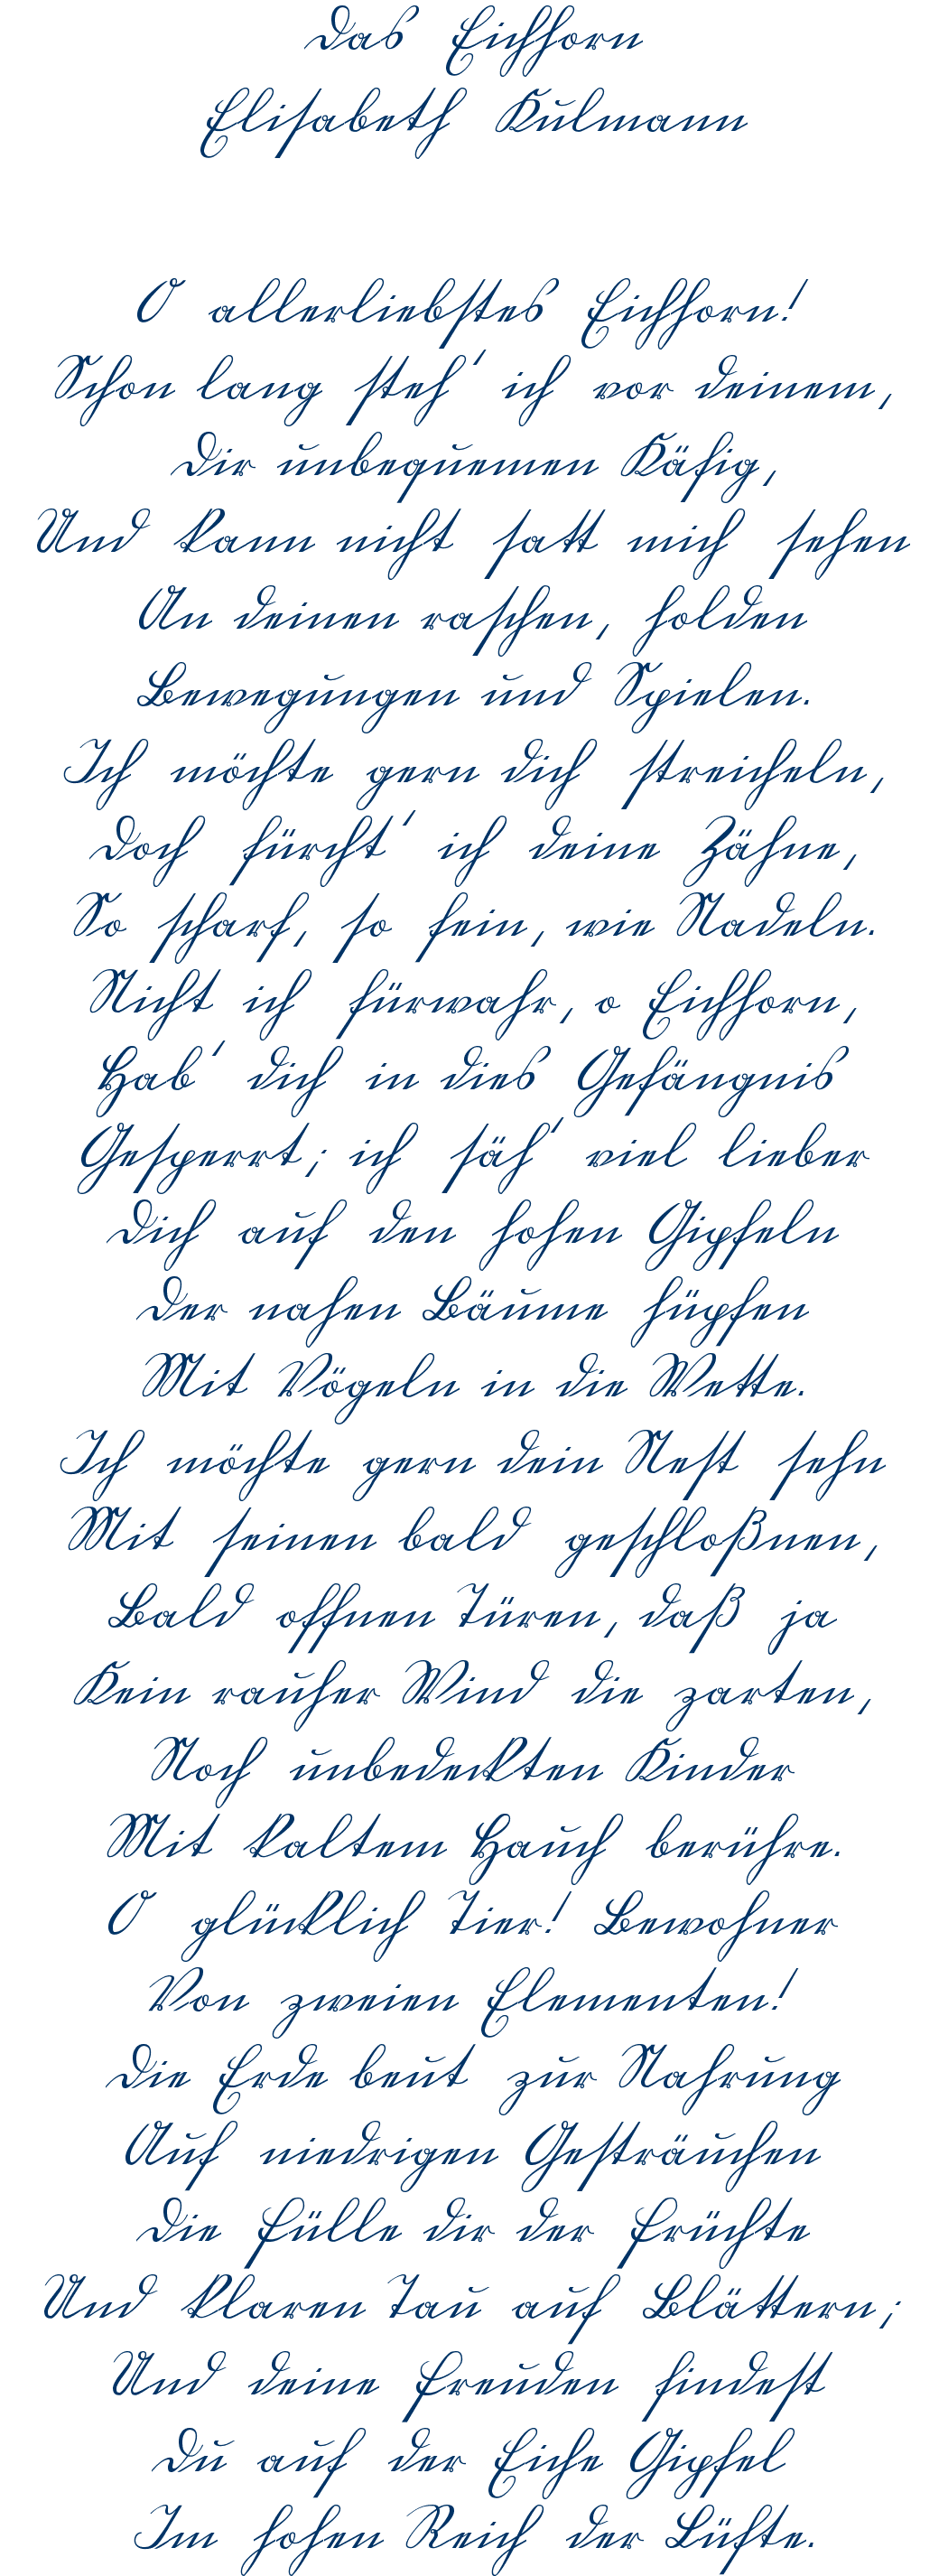 Das Eichhorn
Elisabeth Kulmann
O allerliebstes Eichhorn!
Schon lang steh' ich vor deinem,
Dir unbequemen Käfig,
Und kann nicht satt mich sehen
An deinen raschen, holden
Bewegungen und Spielen.
Ich möchte gern dich streicheln,
Doch fürcht' ich deine Zähne,
So scharf, so fein, wie Nadeln.
Nicht ich fürwahr, o Eichhorn,
Hab' dich in dies Gefängnis
Gesperrt; ich säh' viel lieber
Dich auf den hohen Gipfeln
Der nahen Bäume hüpfen
Mit Vögeln in die Wette.
Ich möchte gern dein Nest sehn
Mit seinen bald geschloßnen,
Bald offnen Türen, daß ja
Kein rauher Wind die zarten,
Noch unbedeckten Kinder
Mit kaltem Hauch berühre.
O glücklich Tier! Bewohner
Von zweien Elementen!
Die Erde beut zur Nahrung
Auf niedrigen Gesträuchen
Die Fülle dir der Früchte
Und klaren Tau auf Blättern;
Und deine Freuden findest
Du auf der Eiche Gipfel
Im hohen Reich der Lüfte.